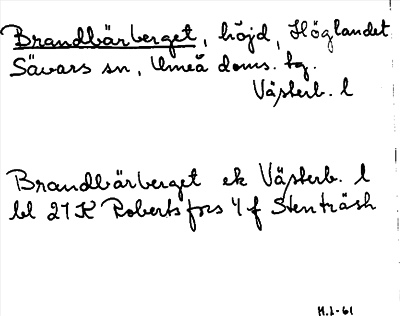 Brandbärberget, höjd, Höglandet
Sävars sn, Umeå doms. tg.
Västerb. l
Brandbärberget ek Västerb. l
bl 21K Robertsfors 4 f Stenträsk
H.J-61